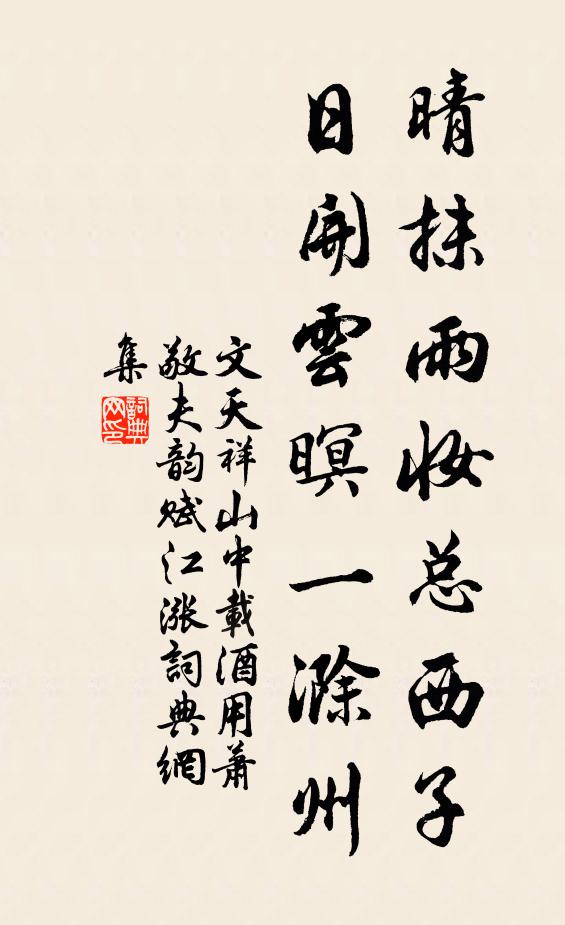 晴抹雨妆总西子
日開雲暝一滁州
文天祥山中載酒用萧
敬夫韵赋江涨詞典網
集
詞典網印